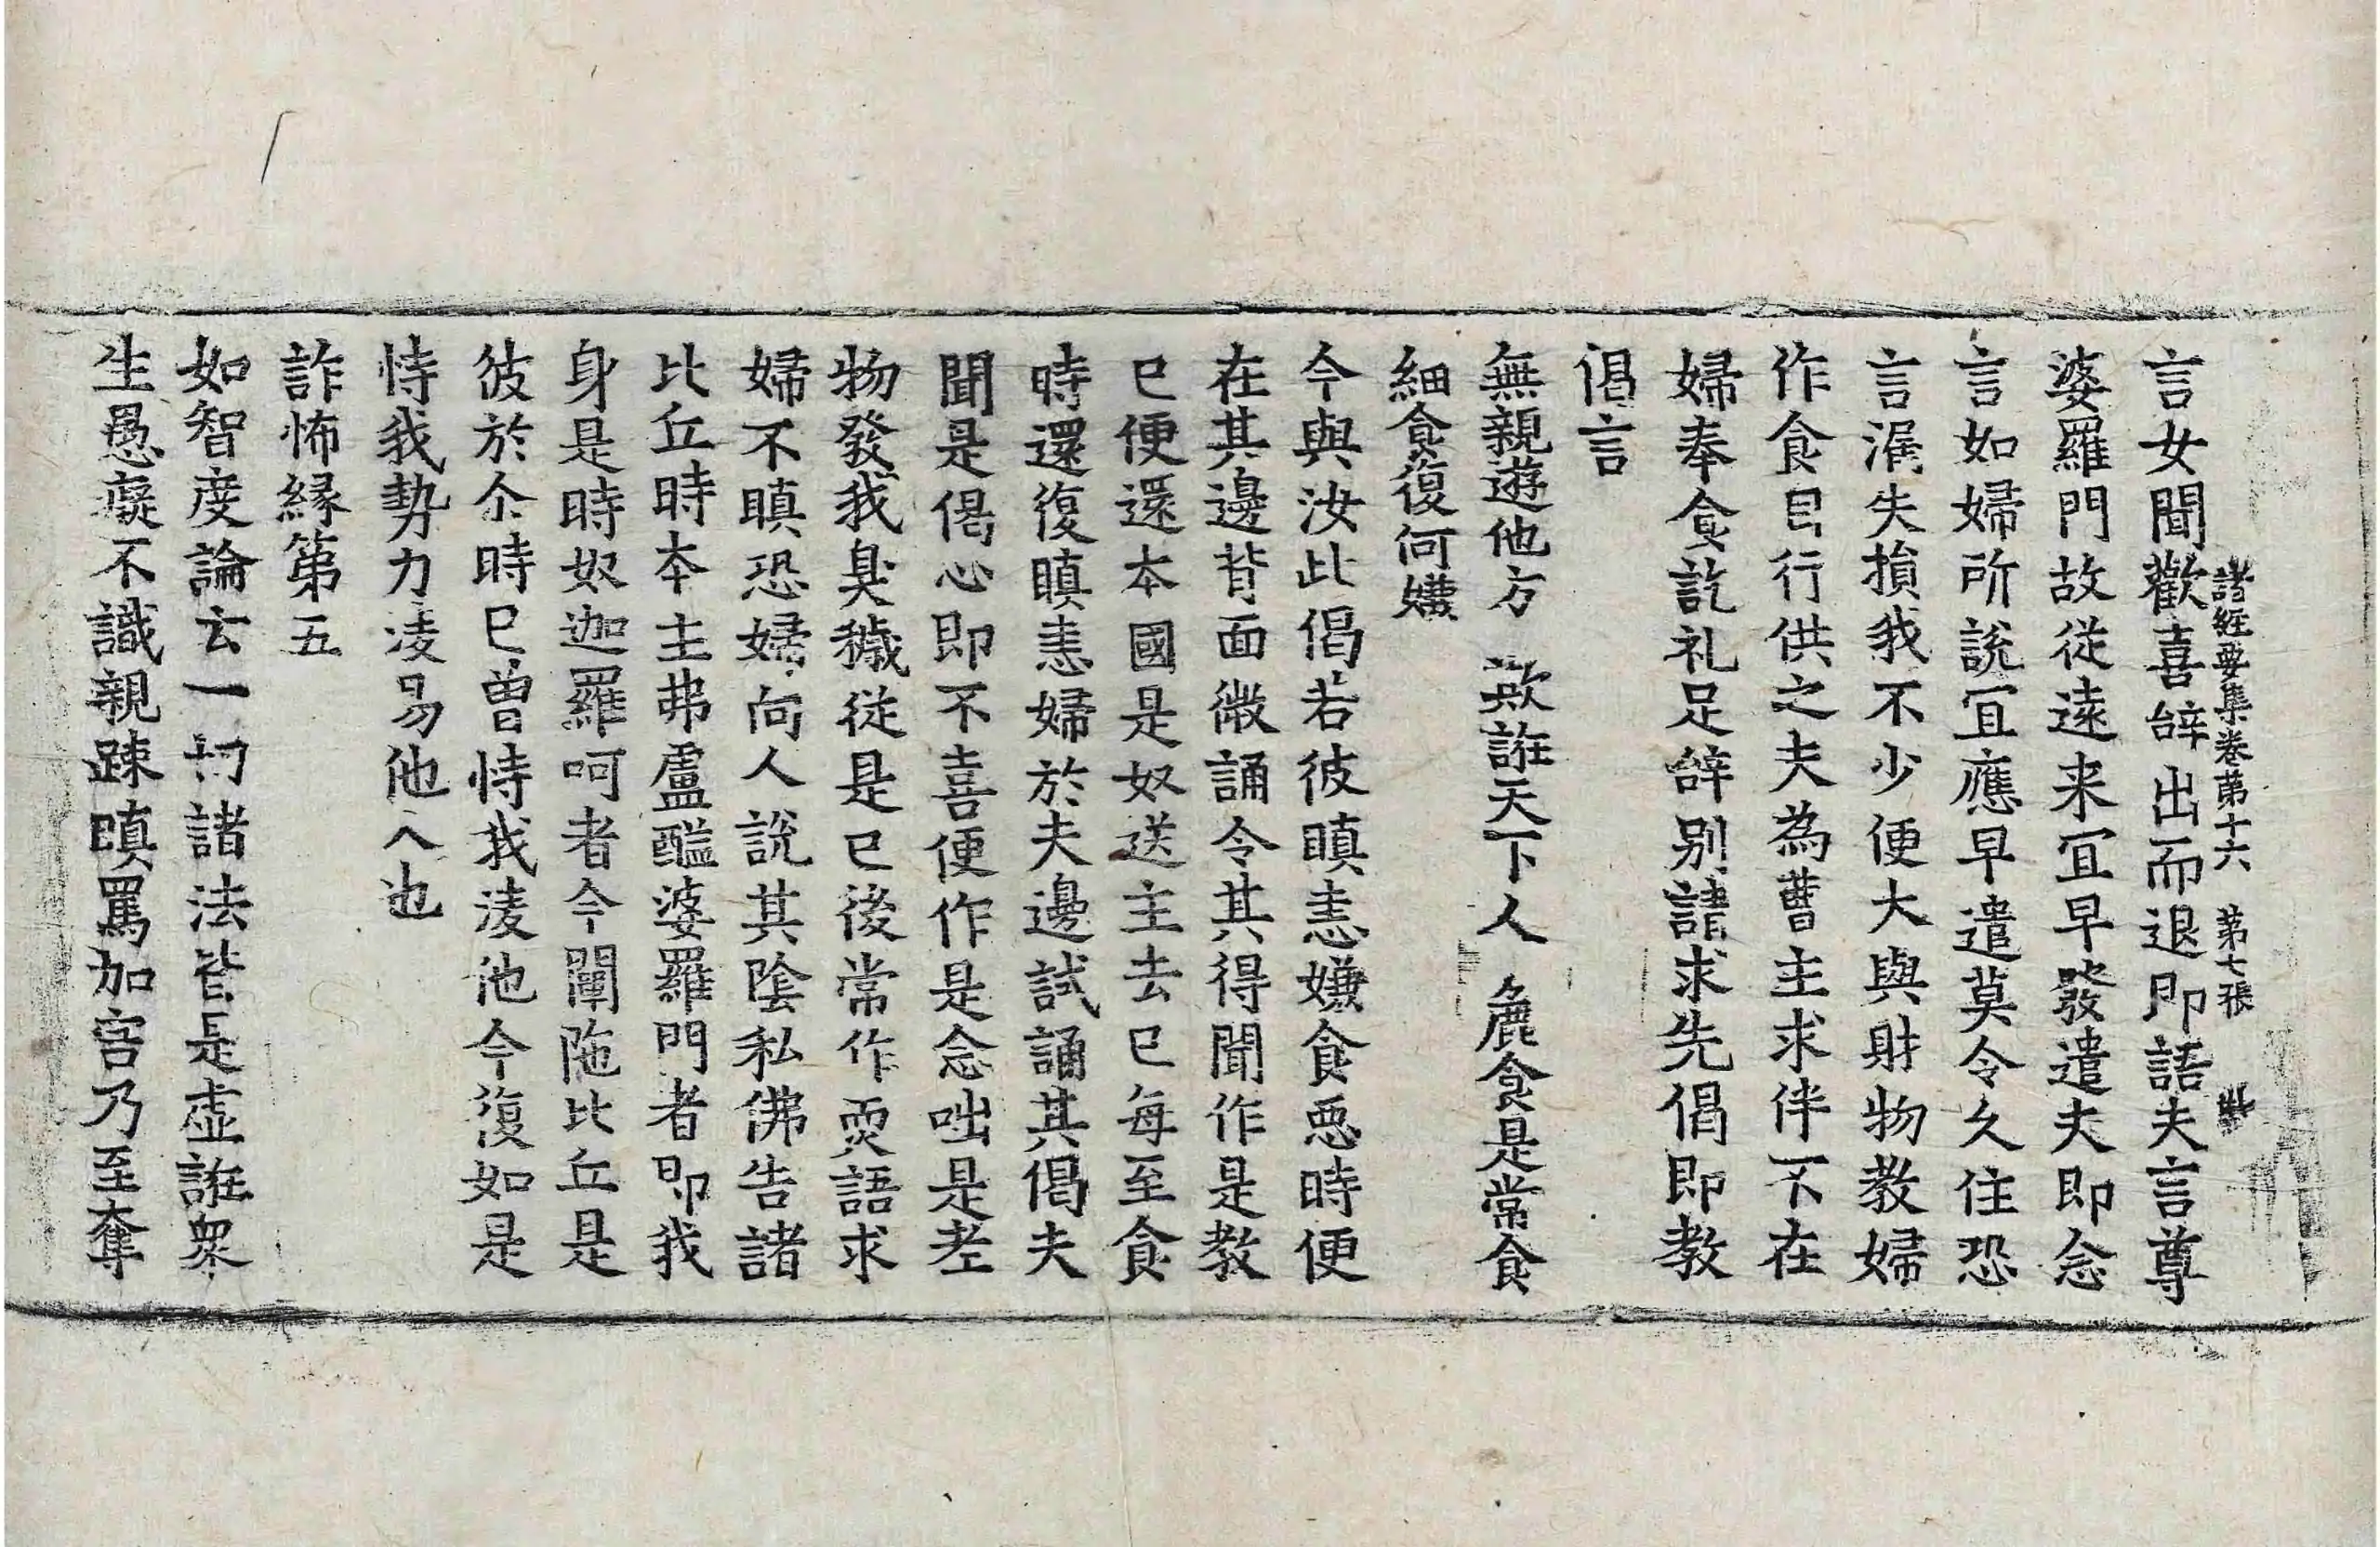 諸經要集卷第十六 第七張
言女聞歡喜辝出而退即語夫言尊
婆羅門故從遠来冝早發遣夫即念
言如婦所說冝應早遣莫令久住恐
言漏失損我不少便大與財物教婦
作食自行供之夫為曹主求伴不在
婦奉食訖礼足辝別請求先偈即教
偈言
無親遊他方 欺誑天下人 麁食是常食
細食復何嫌
今與汝此偈若彼瞋恚嫌食惡時便
在其邊背面微誦令其得聞作是教
已便還本國是奴送主去已每至食
時還復瞋恚婦於夫邊試誦其偈夫
聞是偈心即不喜便作是念咄是老
物發我臭穢從是已後常作耎語求
婦不瞋恐婦向人說其陰私佛告諸
比丘時本主弗盧醯婆羅門者即我
身是時奴迦羅呵者今闡陁比丘是
彼於尒時已曾恃我凌他今復如是
恃我勢力凌易他人也
詐怖緣第五
如智度論云一切諸法皆是虛誑衆
生愚癡不識親踈瞋罵加害乃至奪